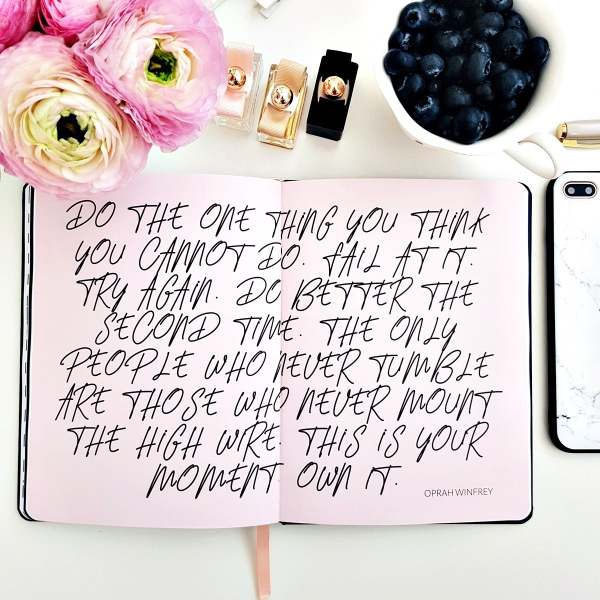 DO THE ONE THING YOU THINK
YOU CANNOT DO. FAIL AT IT.
TRY AGAIN. DO BETTER THE
SECOND TIME. THE ONLY
PEOPLE WHO NEVER TUMBLE
ARE THOSE WHO NEVER MOUNT
THE HIGH WIRE. THIS IS YOUR
MOMENT. OWN IT.
OPRAH WINFREY